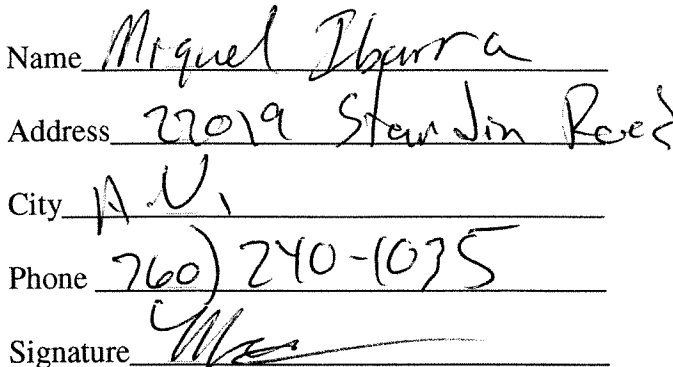 Name Miguel Ibarra
Address 22019 Standin Road
City A.V.
Phone 760) 240-1035
Signature